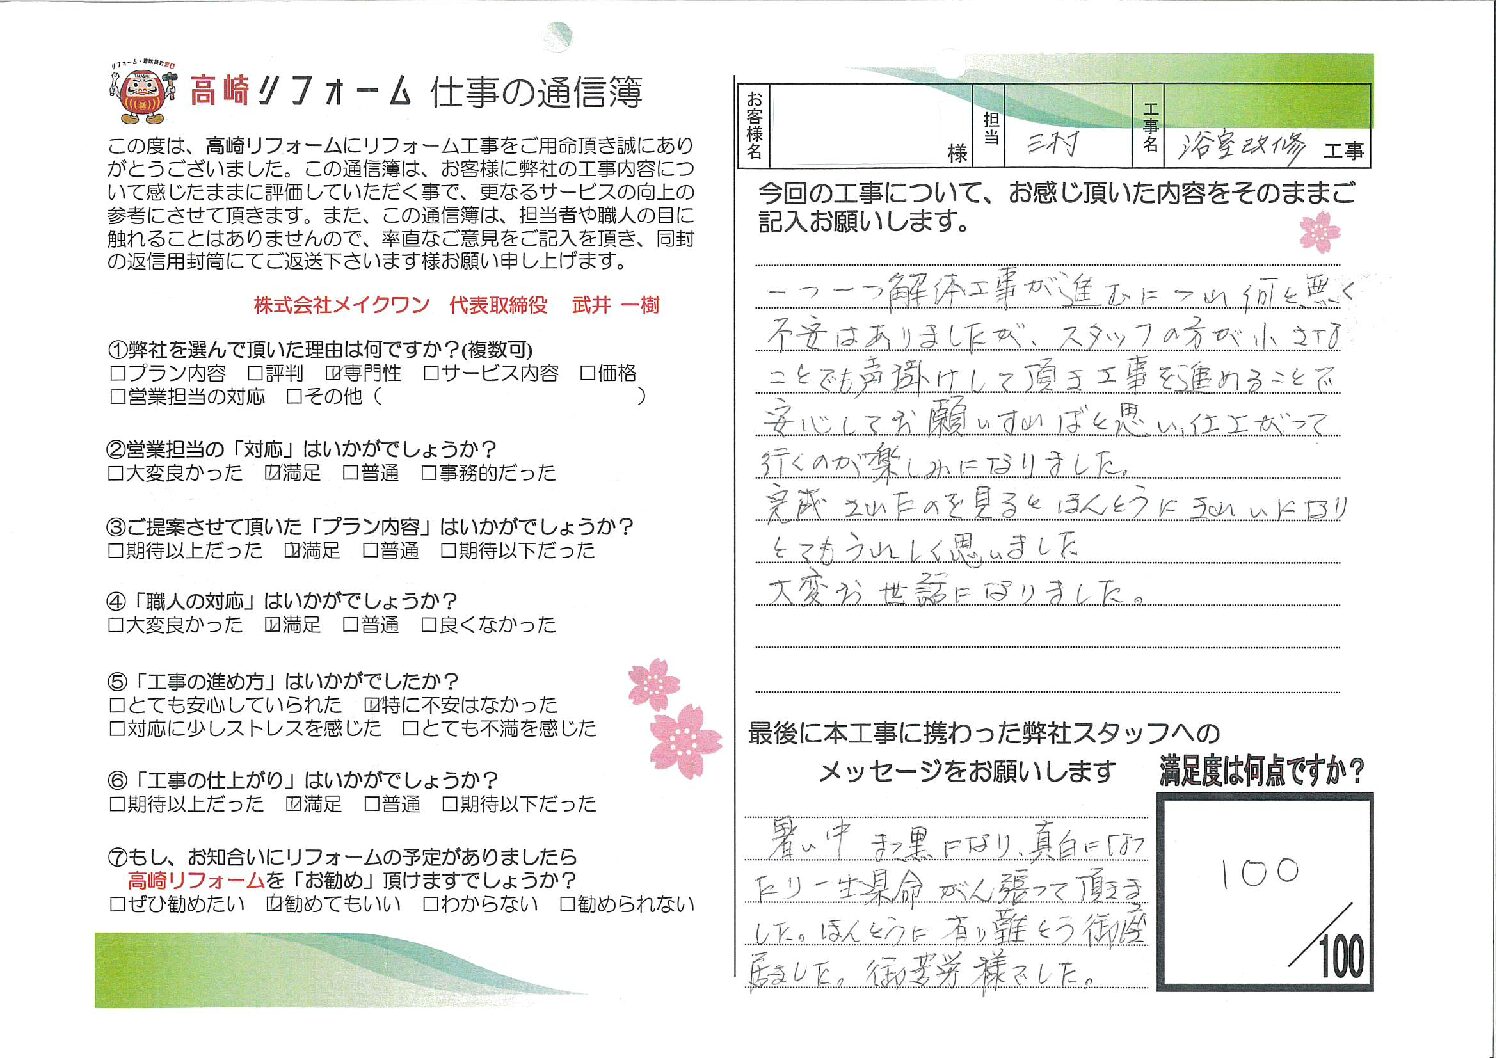 リフォーム・増改築は高崎
高崎リフォーム 仕事の通信簿
この度は、高崎リフォームにリフォーム工事をご用命頂き誠にあり
がとうございました。この通信簿は、お客様に弊社の工事内容につ
いて感じたままに評価していただく事で、更なるサービスの向上の
参考にさせて頂きます。また、この通信簿は、担当者や職人の目に
触れることはありませんので、率直なご意見をご記入を頂き、同封
の返信用封筒にてご返送下さいます様お願い申し上げます。
株式会社メイクワン 代表取締役 武井 一樹
①弊社を選んで頂いた理由は何ですか？(複数可)
□プラン内容 ☑評判 ☑専門性 □サービス内容 □価格
□営業担当の対応 □その他（ ）
②営業担当の「対応」はいかがでしょうか？
□大変良かった ☑満足 □普通 □事務的だった
③ご提案させて頂いた「プラン内容」はいかがでしょうか？
□期待以上だった ☑満足 □普通 □期待以下だった
④「職人の対応」はいかがでしょうか？
□大変良かった ☑満足 □普通 □良くなかった
⑤「工事の進め方」はいかがでしたか？
□とても安心していられた ☑特に不安はなかった
□対応に少しストレスを感じた □とても不満を感じた
⑥「工事の仕上がり」はいかがでしょうか？
□期待以上だった ☑満足 □普通 □期待以下だった
⑦もし、お知合いにリフォームの予定がありましたら
高崎リフォームを「お勧め」頂けますでしょうか？
□ぜひ勧めたい ☑勧めてもいい □わからない □勧められない
お客様名 様 担当 三村 工事名 浴室改修 工事
今回の工事について、お感じ頂いた内容をそのままご
記入お願いします。
一つ一つ解体工事が進むにつれ何と無く
不安はありましたが、スタッフの方が小さな
ことでも声掛けして頂き工事を進めることで
安心してお願いすればと思い、仕上がって
行くのが楽しみになりました。
完成されたのを見るとほんとうにきれいになり
とてもうれしく思いました
大変お世話になりました。
最後に本工事に携わった弊社スタッフへの
メッセージをお願いします
暑い中 まっ黒になり、真白になっ
たり一生懸命がん張って頂きま
した。ほんとうに有り難とう御座
居ました。御苦労様でした。
満足度は何点ですか？
100
／100